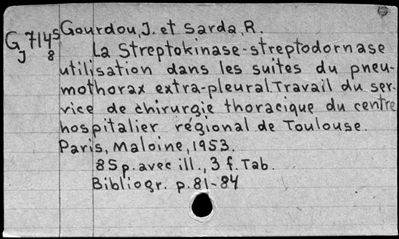 Gourdou, J. et Sarda, R.
G 714s
J 8
La Streptokinase-streptodornase
utilisation dans les suites du pneu-
mothorax extra-pleural. Travail du ser-
vice de chirurgie thoracique du centre
hospitalier régional de Toulouse.
Paris, Maloine, 1953.
85 p. avec ill., 3 f. Tab.
Bibliogr. p. 81-84